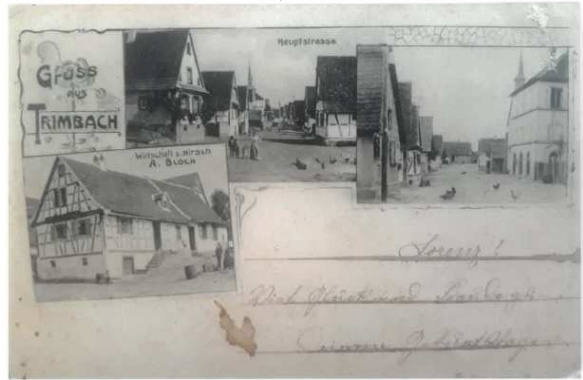 Gruss
aus
TRIMBACH
Hauptstrasse
Wirtschaft z. Hirsch
A. BLOCH
Lorenz!
Viel Glück und Freude zu
Deinem Geburtstage.